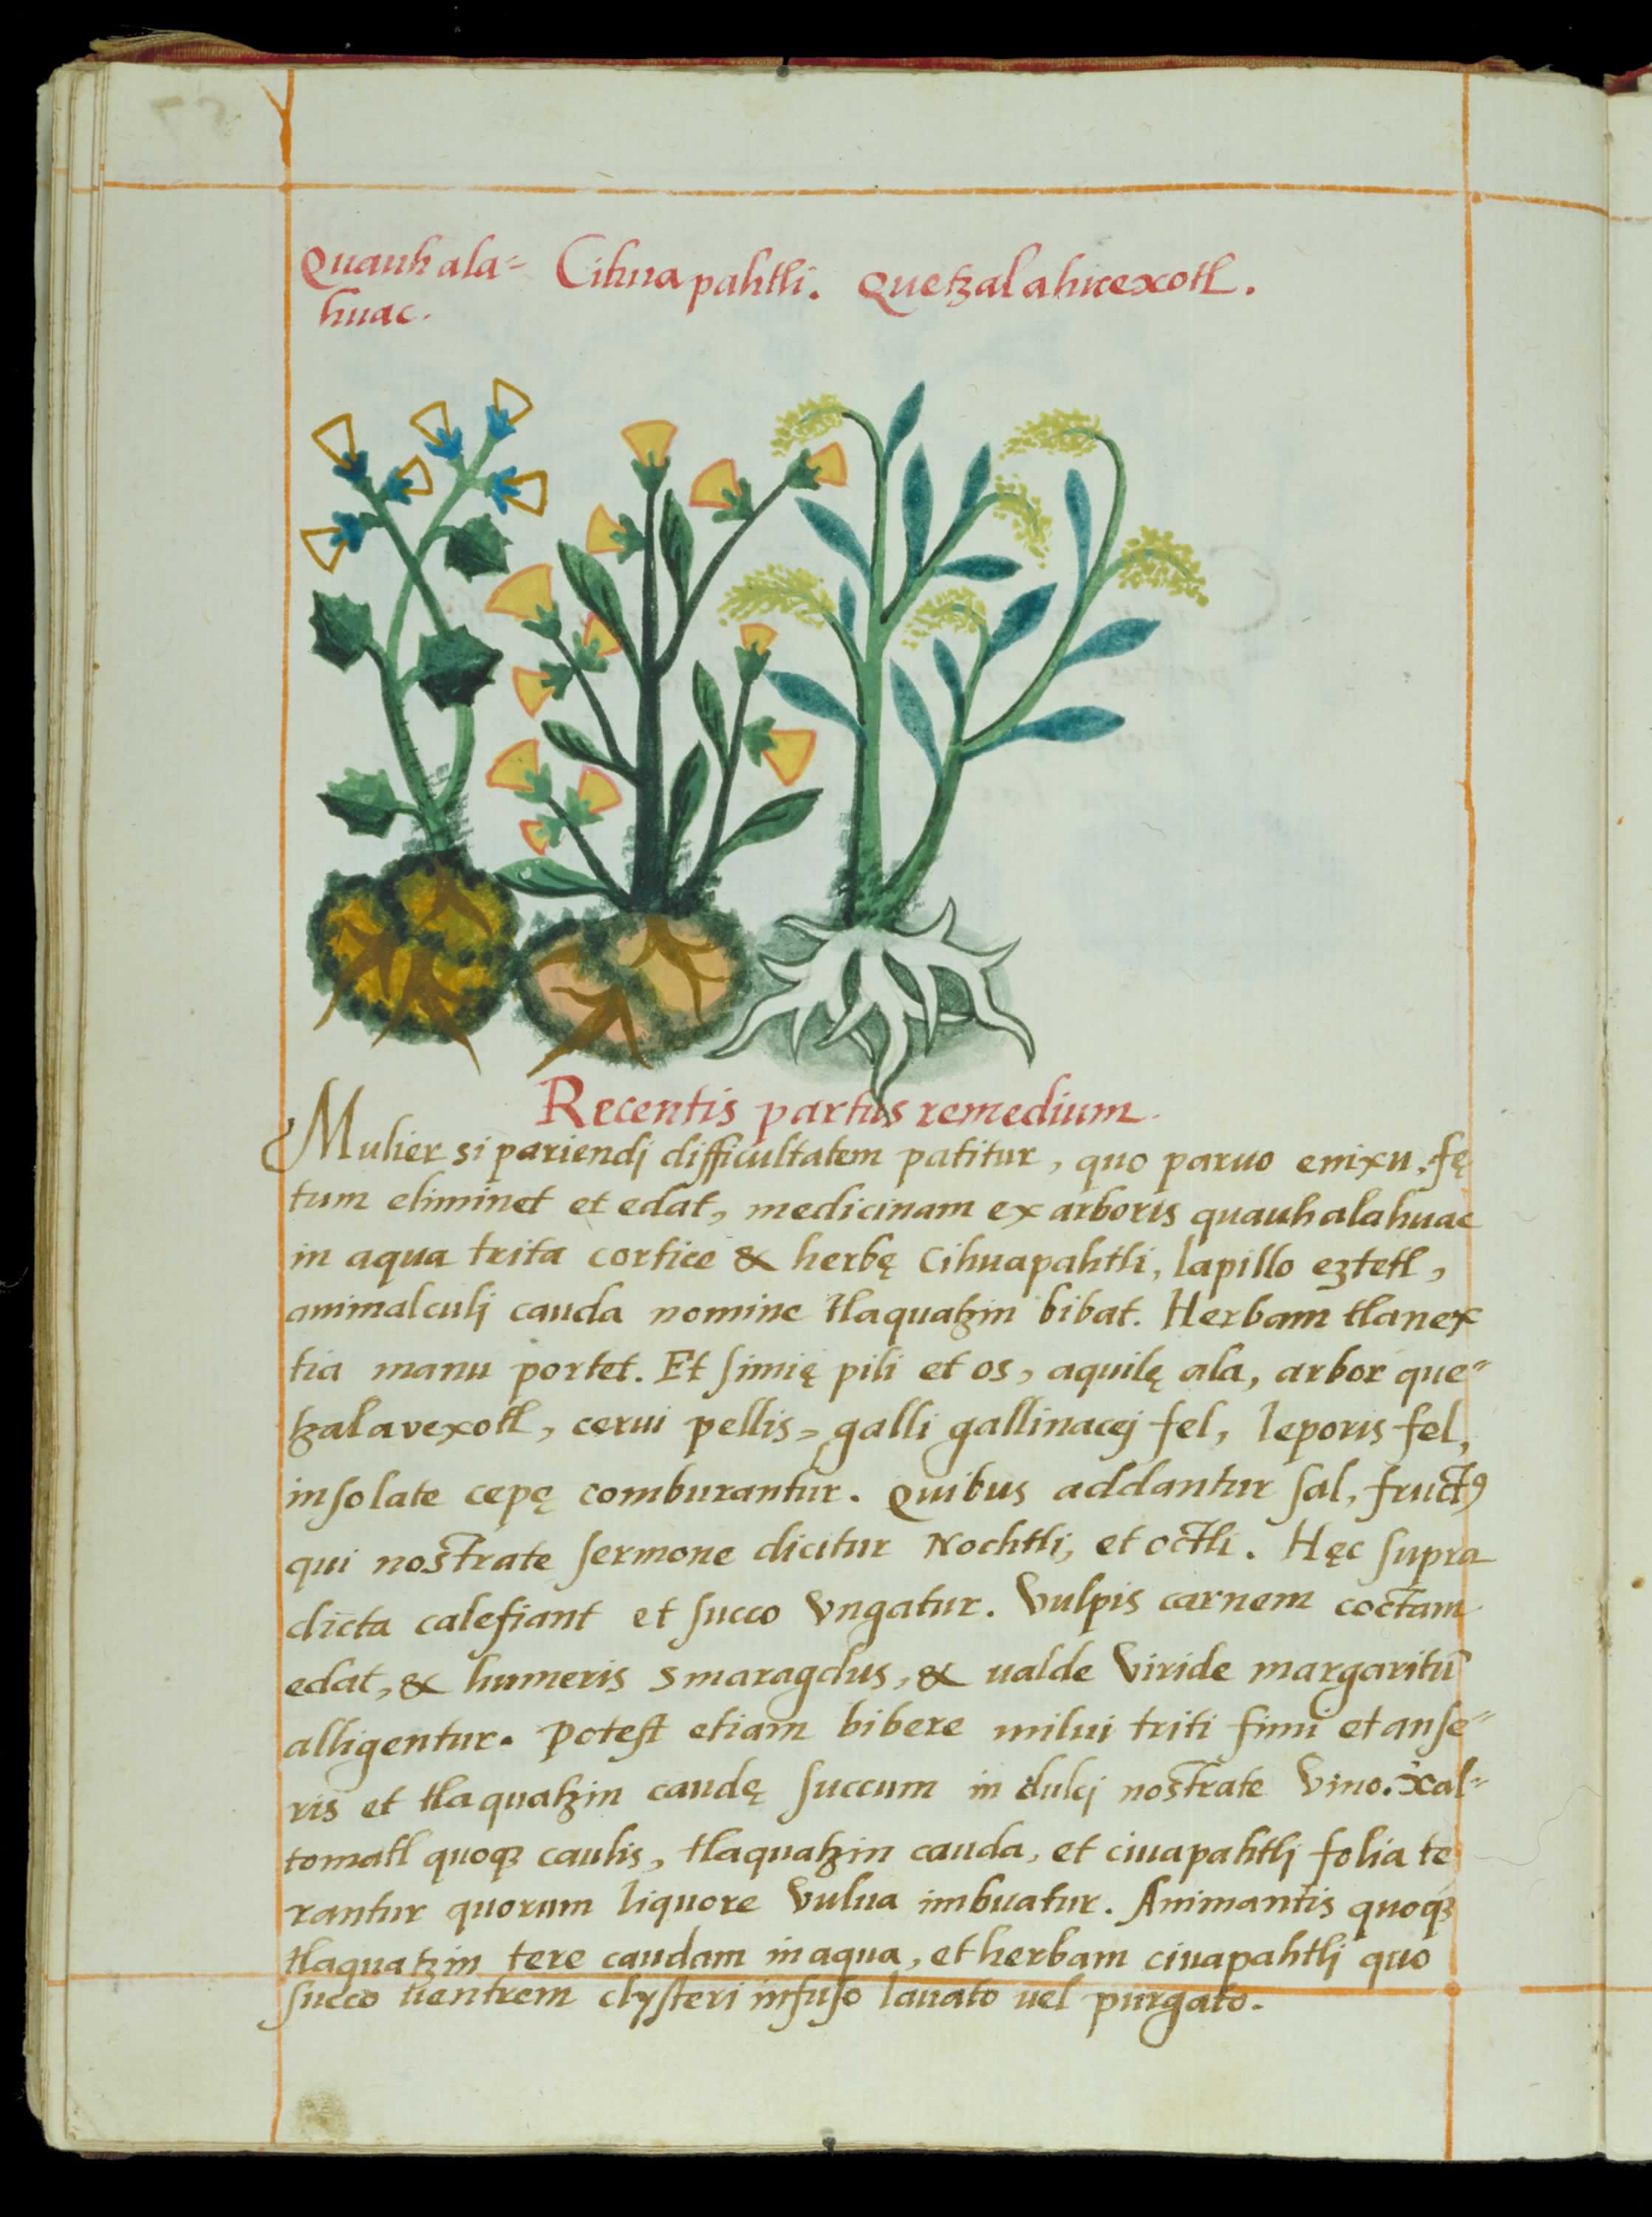 Quauh ala= Cihuapahtli. Quetzalahuexotl.
huac.
Recentis partus remedium.
Mulier si pariendj difficultatem patitur, quo paruo enixu, fę
tum eliminet et edat, medicinam ex arboris quauhalahuac
in aqua trita cortice & herbę Cihuapahtli, lapillo eztetl,
animalculj cauda nomine tlaquatzin bibat. Herbam tlanex
tia manu portet. Et simię pili et os, aquilę ala, arbor que=
tzalavexotl, cerui pellis, galli gallinacej fel, leporis fel,
insolate cepę comburantur. Quibus addantur sal, fructꝯ
qui nostrate sermone dicitur Nochtli, et octli. Hęc supra
dicta calefiant et succo vngatur. Vulpis carnem coctam
edat, & humeris Smaragdus, & ualde viride margaritũ
alligentur. Potest etiam bibere milui triti fimi et anse=
ris et tlaquatzin caudę succum in dulcj nostrate vino. Xal=
tomatl quoqꝫ caulis, tlaquatzin cauda, et ciuapahtlj folia te
rantur quorum liquore vulua imbuatur. Animantis quoqꝫ
tlaquatzin tere caudam in aqua, et herbam ciuapahtlj quo
succo uentrem clysteri infuso lauato uel purgato.